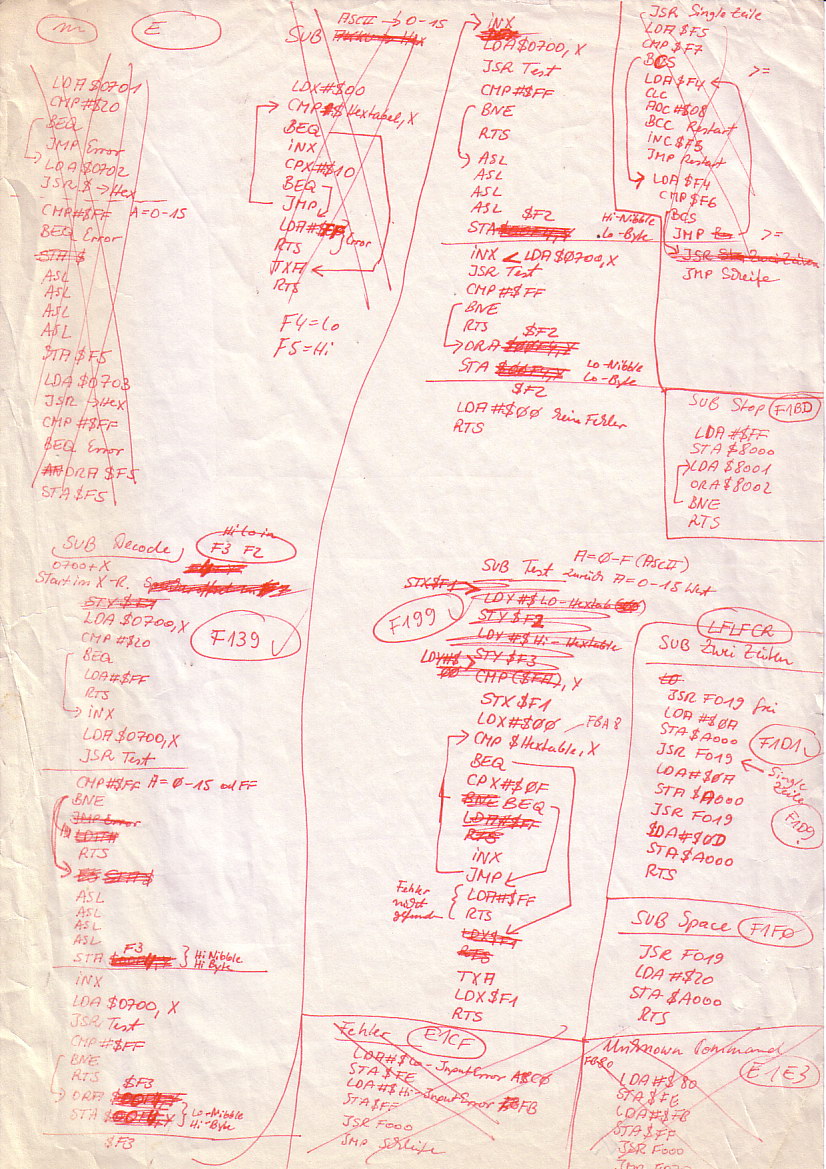 m
E
LDA $0701
CMP #$20
BEQ
JMP Error
LDA $0702
JSR $ → Hex
CMP #$FF A=0-15
BEQ Error
STA $
ASL
ASL
ASL
ASL
STA $F5
LDA $0703
JSR → Hex
CMP #$FF
BEQ Error
ORA $F5
STA $F5
ASCII → 0-15
SUB
LDX #$00
CMP $ Hextabel, X
BEQ
INX
CPX #$10
BEQ
JMP
LDA #$FF
RTS
Error
TXA
RTS
F4 = Lo
F5 = Hi
INX
LDA $0700, X
JSR Test
CMP #$FF
BNE
RTS
ASL
ASL
ASL
ASL
$F2
STA
Hi-Nibble
Lo-Byte
INX LDA $0700, X
JSR Test
CMP #$FF
BNE
RTS
$F2
ORA
STA
Lo-Nibble
Lo-Byte
$F2
LDA #$00 kein Fehler
RTS
JSR Single Zeile
LDA $F5
CMP $F7
BCS
>=
LDA $F4
CLC
ADC #$08
BCC Restart
INC $F5
JMP Restart
LDA $F4
CMP $F6
BCS
JMP
>=
JSR Zwei Zeilen
JMP Schleife
SUB Stop F1BD
LDA #$FF
STA $8000
LDA $8001
ORA $8002
BNE
RTS
SUB Decode
Hi Lo in
F3 F2
0700+X
Start im X-R.
STY $F1
LDA $0700, X
CMP #$20
BEQ
LDA #$FF
RTS
INX
LDA $0700, X
JSR Test
F139
CMP #$FF A=0-15 od FF
BNE
JMP Error
LDA #
RTS
ASL
ASL
ASL
ASL
F3
STA
Hi-Nibble
Hi-Byte
INX
LDA $0700, X
JSR Test
CMP #$FF
BNE
RTS
$F3
ORA
STA
Lo-Nibble
Hi-Byte
$F3
SUB Test
A=0-F (ASCII)
zurück A=0-15 Wert
STX $F1
LDY #$ Lo-Hextab
F199
STY $F2
LDY #$ Hi-Hextable
LDY #$
00
STY $F3
CMP ($FA), X
STX $F1
LDX #$00
FBA8
CMP $ Hextable, X
BEQ
CPX #$0F
BNE BEQ
LDA #$FF
RTS
INX
JMP
Fehler
nicht
gefunden
LDA #$FF
RTS
LDX $F1
RTS
TXA
LDX $F1
RTS
LFLFCR
SUB Zwei Zeilen
JSR F019 frei
LDA #$0A
STA $A000
F1D1
JSR F019
Single
Zeile
LDA #$0A
STA $A000
F1D9
JSR F019
LDA #$0D
STA $A000
RTS
SUB Space F1F0
JSR F019
LDA #$20
STA $A000
RTS
Fehler E1CF
LDA #$ Lo-Input Error A8C0
STA $FE
LDA #$ Hi-Input Error FB
STA $FF
JSR F000
JMP Schleife
Unknown Command
E1E3
FB80
LDA #$80
STA $FE
LDA #$FB
STA $FF
JSR F000